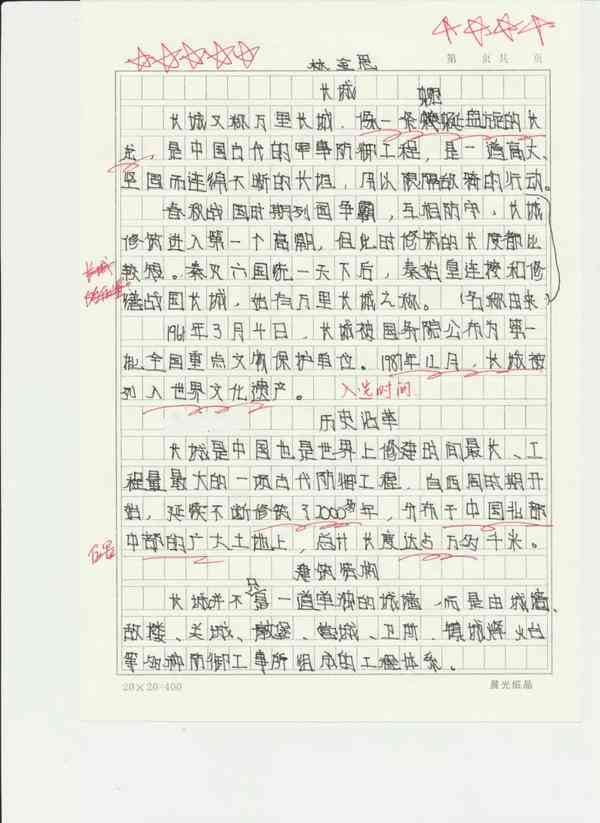 第 页 共 页
林
长城
长城又称万里长城,像一条蜿蜒盘旋的长
龙,是中国古代的军事防御工程,是一道高大、
坚固而连绵不断的长垣,用以限隔敌骑的行动。
春秋战国时期列国争霸,互相防守,长城
修筑进入第一个高潮,但此时修筑的长度都比
较短。秦灭六国统一天下后,秦始皇连接和修
缮战国长城,始有万里长城之称。(名称由来)
长城
1961年3月4日,长城被国务院公布为第一
批全国重点文物保护单位。1987年12月,长城被
列入世界文化遗产。 入选时间
历史沿革
长城是中国也是世界上修建时间最长、工
程量最大的一项古代防御工程,自西周时期开
始,延续不断修筑了2000多年,分布于中国北部
位置
中部的广大土地上,总计长度达五万多千米。
建筑结构
长城并不只是一道单独的城墙,而是由城墙、
敌楼、关城、墩堡、营城、卫所、镇城烽火台
等多种防御工事所组成的工程体系。
20×20=400
晨光纸品